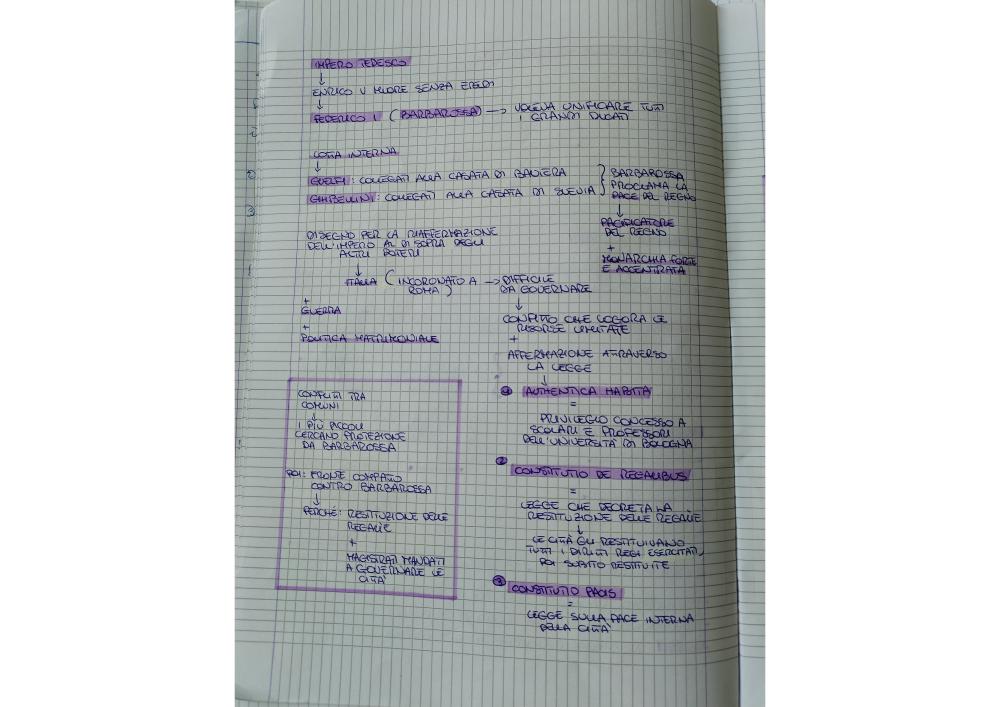 IMPERO TEDESCO
↓
ENRICO V MUORE SENZA EREDI
↓
FEDERICO I (BARBAROSSA) → VOLEVA UNIFICARE TUTTI
I GRANDI DUCATI
LOTTA INTERNA
↓
GUELFI: COLLEGATI ALLA CASATA DI BAVIERA
GHIBELLINI: COLLEGATI ALLA CASATA DI SVEVIA
} BARBAROSSA
PROCLAMA LA
PACE DEL REGNO
↓
PACIFICATORE
DEL REGNO
+
MONARCHIA FORTE
E ACCENTRATA
DISEGNO PER LA RIAFFERMAZIONE
DELL'IMPERO AL DI SOPRA DEGLI
ALTRI POTERI
↓
ITALIA (INCORONATO A
ROMA)
→ DIFFICILE
DA GOVERNARE
+
GUERRA
+
POLITICA MATRIMONIALE
↓
CONFLITTO CHE LOGORA LE
RISORSE LIMITATE
+
AFFERMAZIONE ATTRAVERSO
LA LEGGE
↓
1 AUTHENTICA HABITA
=
PRIVILEGIO CONCESSO A
SCOLARI E PROFESSORI
DELL'UNIVERSITÀ DI BOLOGNA
2 CONSTITUTIO DE REGALIBUS
=
LEGGE CHE DECRETA LA
RESTITUZIONE DELLE REGALIE
↓
LE CITTÀ GLI RESTITUIVANO
TUTTI I DIRITTI REGI ESERCITATI,
POI SUBITO RESTITUITE
3 CONSTITUTIO PACIS
=
LEGGE SULLA PACE INTERNA
DELLA CITTÀ
CONFLITTI TRA
COMUNI
↓
I PIÙ PICCOLI
CERCANO PROTEZIONE
DA BARBAROSSA
POI: FRONTE COMPATTO
CONTRO BARBAROSSA
↓
PERCHÉ: RESTITUZIONE DELLE
REGALIE
+
MAGISTRATI MANDATI
A GOVERNARE LE
CITTÀ